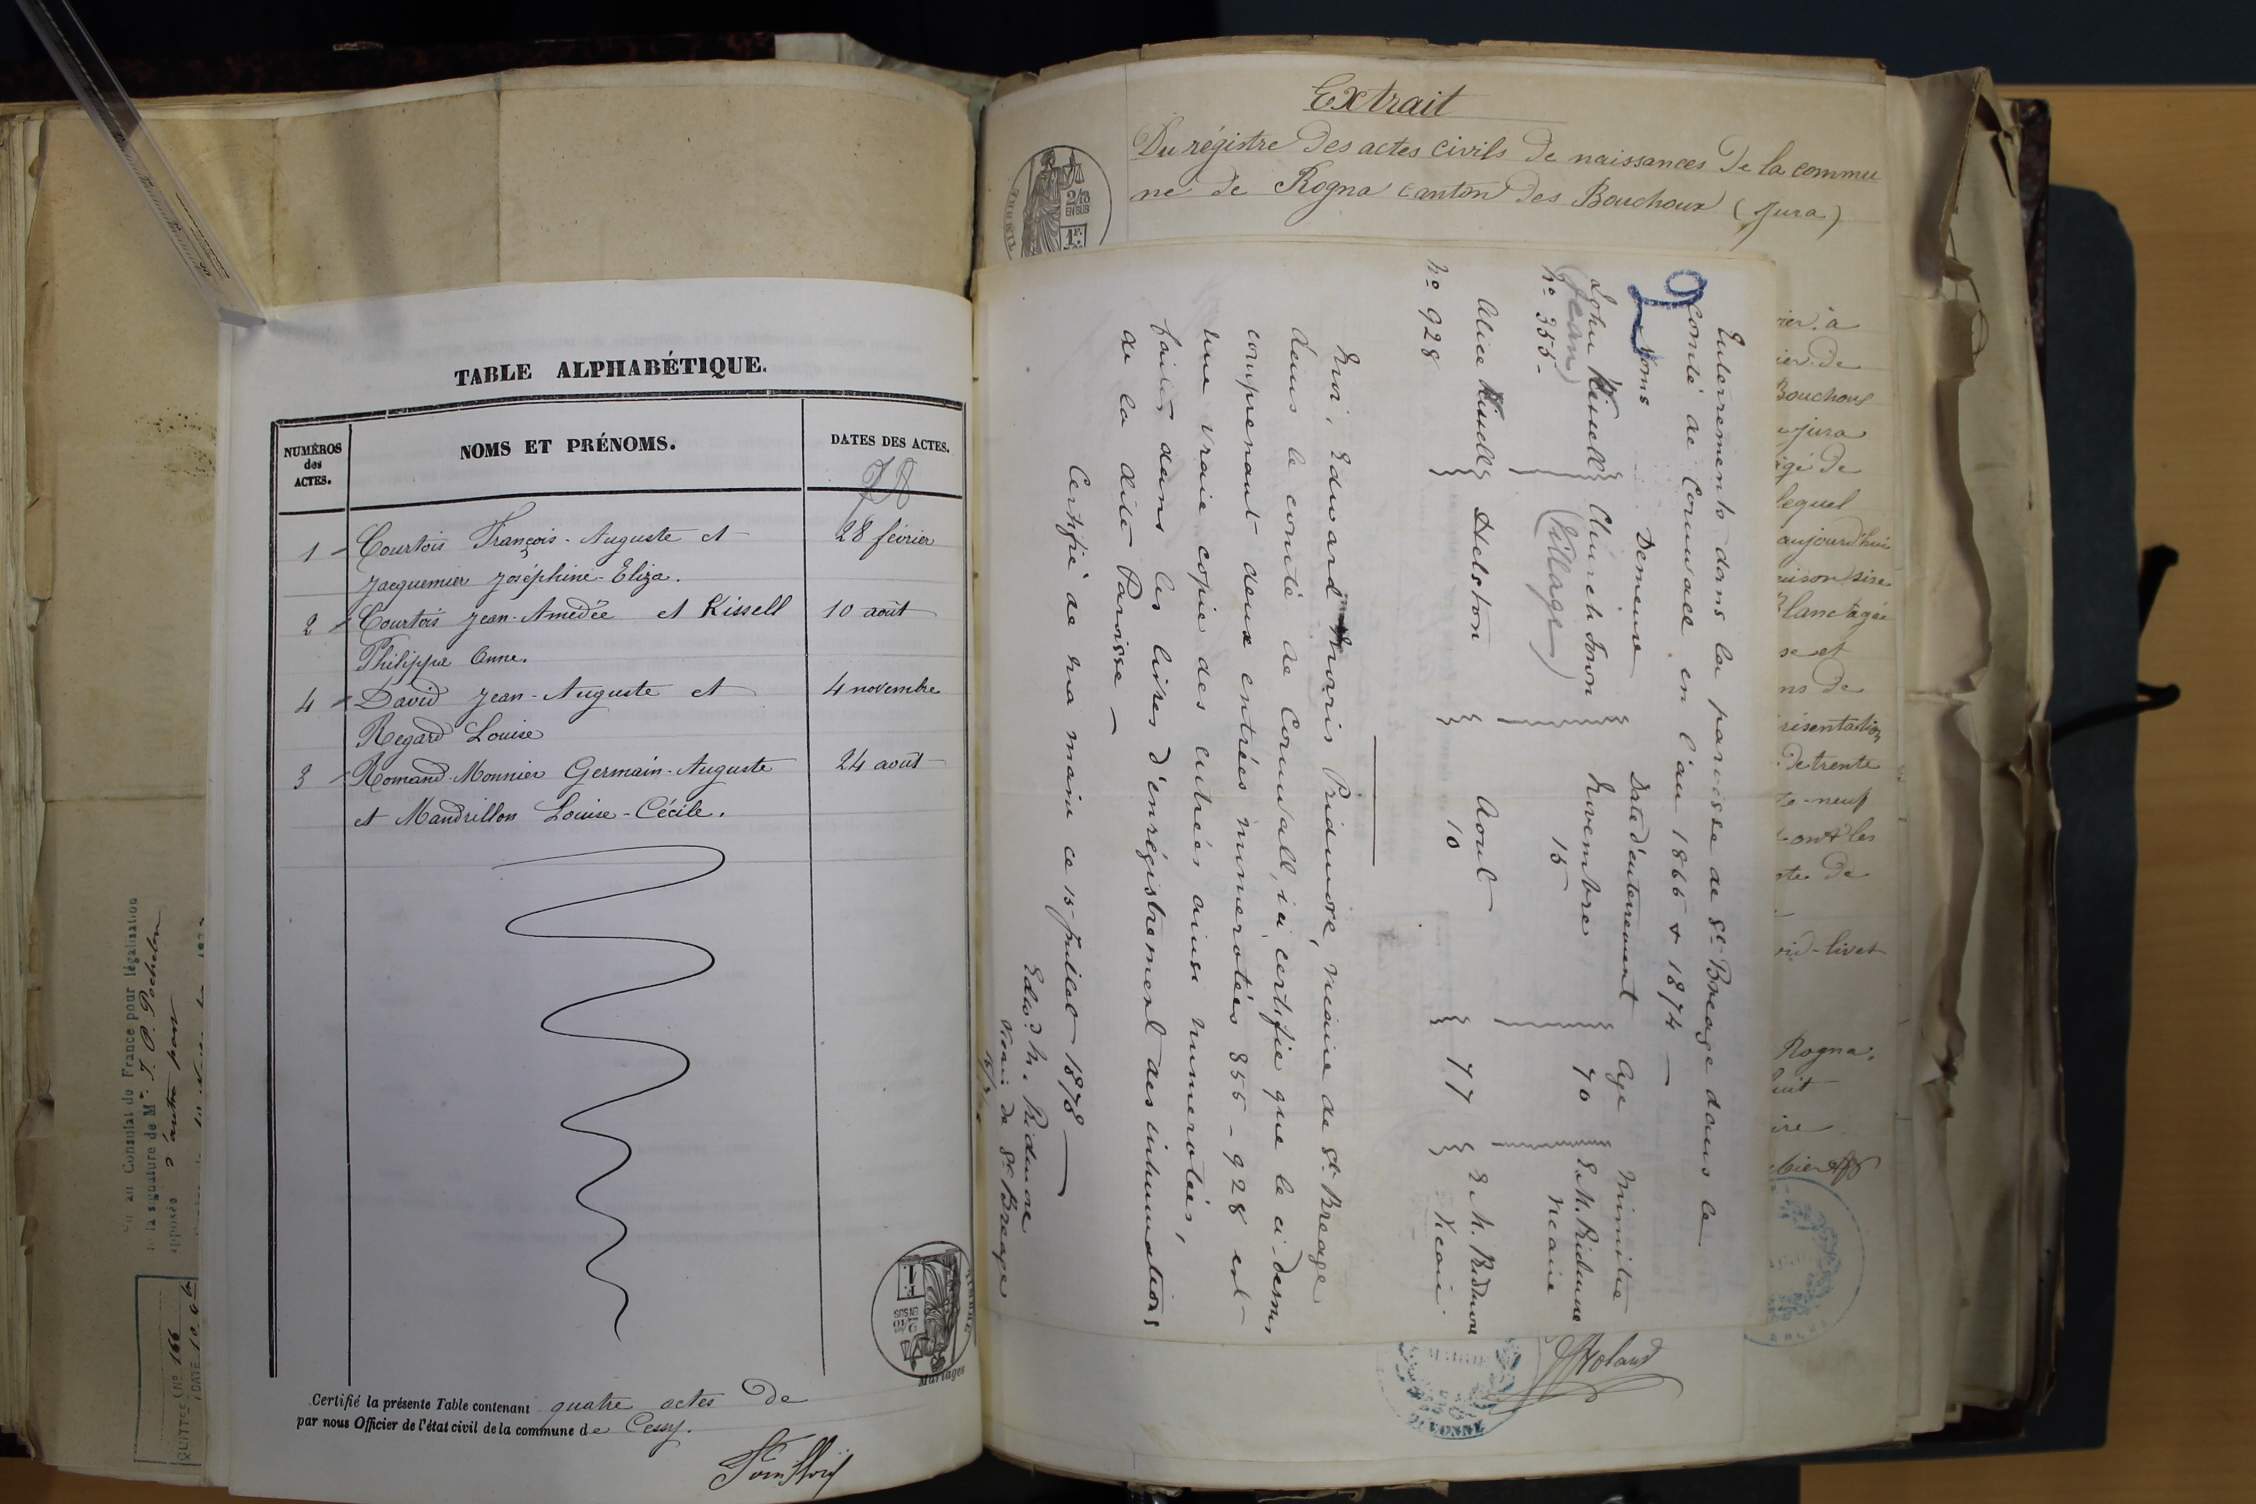 TABLE ALPHABÉTIQUE.
NUMÉROS
des
ACTES.
NOMS ET PRÉNOMS.
DATES DES ACTES.
78
1 - Courtois François-Auguste et 28 février
Jacquemier Joséphine-Eliza.
2 - Courtois Jean-Amédée et Kissell 10 août
Philippe Anne.
4 - David Jean-Auguste et 4 novembre
Regard Louise
3 - Romand-Monnier Germain-Auguste 24 août
et Mandrillon Louise-Cécile.
Mariages
Certifié la présente Table contenant quatre actes de
par nous Officier de l'état civil de la commune de Cessy.
au Consulat de France pour légalisation
de la signature de Mr. J. P.
apposée d'autre part
QUITce No 166
Extrait
Du régistre des actes civils de naissances de la commu
ne de Rogna canton des Bouchoux (Jura)
2/10
EN SUS
1F.
2
Enterrements dans la paroisse de St. Breage dans le
Comté de Cornwall en l'an 1866 & 1874 —
Noms Demeure Date d'enterrement Age Ministre
John Kissell Church Town Novembre 70 E. M. Pridmore
(Jean) (Village) 15 Vicaire
No 855 -
Alice Kissell Helston Aout 77 E. M. Pridmore
No 928 10 Vicaire.
Moi, Edward Moris Pridmore, Vicaire de St. Breage
dans le comté de Cornwall, ici certifie que le ci-dessus
comprenant deux entrées numerotées 855 - 928 est
une vraie copie des entrées ainsi numerotées,
faites dans les livres d'enrégistrement des inhumations
de la dite Paroisse —
Certifié de ma main ce 15 Juillet 1878 —
Edwd. M. Pridmore
Vicaire de St. Breage
ier de
Bouchoux
Jura
âgé de
lequel
aujourd'hui
maison sise
Blanc âgée
se et
ns de
présentation
de trente
te-neuf
ont les
acte de
Rogna.
huit
ire
Roland
DIVONNE